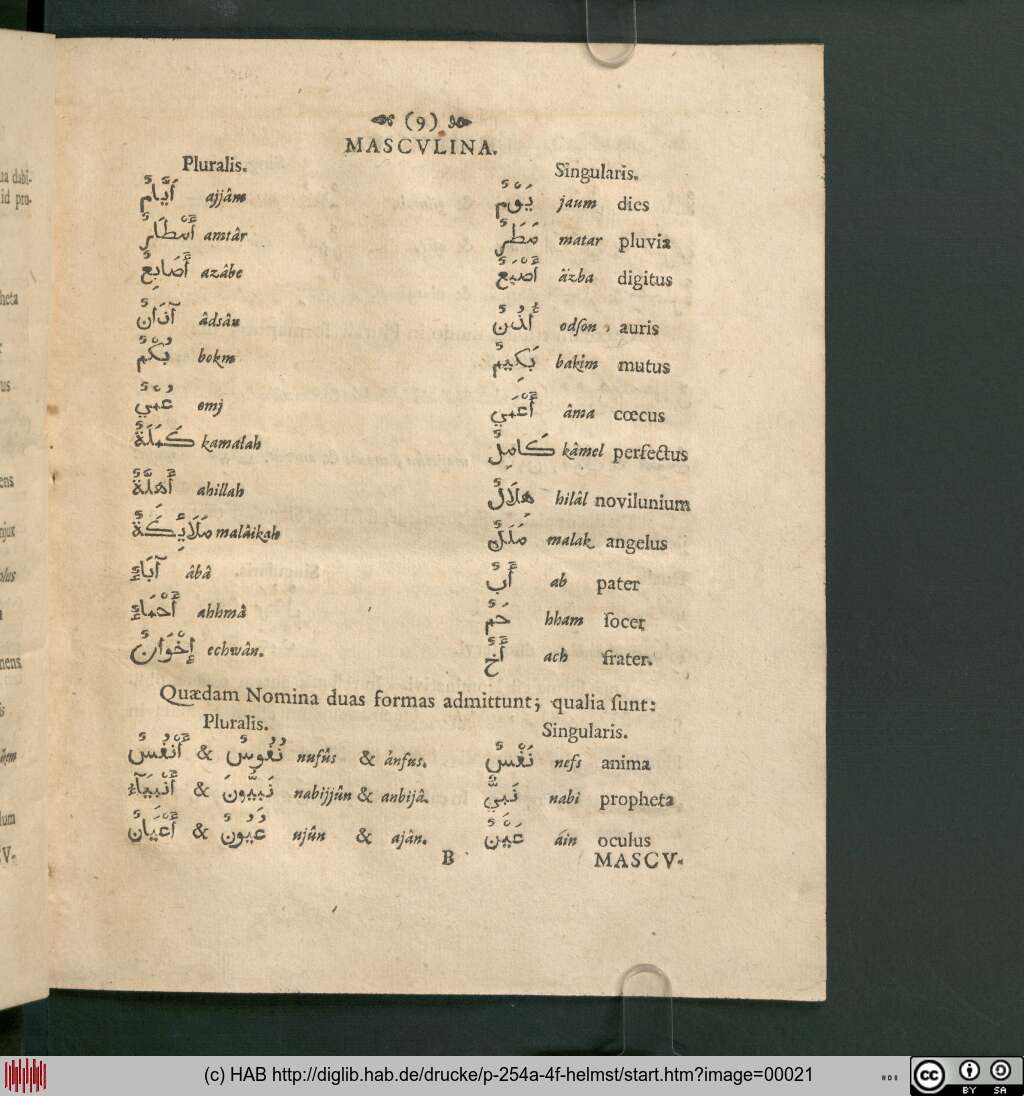 (9)
MASCVLINA.
Pluralis. Singularis.
أَيَّامٌ ajjâm يَوْمٌ jaum dies
أَمْطَارٌ amtâr مَطَرٌ matar pluvia
أَصَابِعٌ azâbe أَصْبَعٌ äzba digitus
آذَانٌ âdsân أُذُنٌ odſon auris
بُكْمٌ bokm بَكِيمٌ bakîm mutus
عُمْيٌ omj أَعْمَيٌ âma cœcus
كَمَلَةٌ kamalah كَامِلٌ kâmel perfectus
أَهِلَّةٌ ahillah هِلَالٌ hilâl novilunium
مَلَائِكَةٌ malâikah مَلَكٌ malak angelus
آبَاءٌ âbâ أَبٌ ab pater
أَحْمَاءٌ ahhmâ حَمٌ hham ſocer
إِخْوَانٌ echwân. أَخٌ ach frater.
Quædam Nomina duas formas admittunt; qualia ſunt:
Pluralis. Singularis.
أَنْفُسٌ & نُفُوسٌ nufûs & ánfus. نَفْسٌ nefs anima
أَنْبِيَآءُ & نَبِيُّونَ nabijjûn & anbijâ. نَبِيٌّ nabi propheta
أَعْيَانٌ & عُيُونٌ ujûn & ajân. عَيْنٌ áin oculus
B MASCV-
ua dabi-
id pro-
heta
us
ens
njux
olus
nens
is
ûem
lum
V-
(c) HAB http://diglib.hab.de/drucke/p-254a-4f-helmst/start.htm?image=00021
HAB
cc BY SA